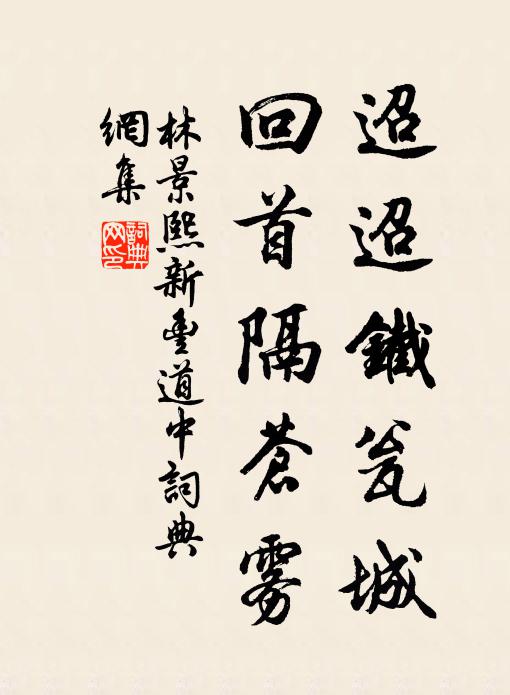 迢迢鐵瓮城
回首隔蒼雾
林景熙新豊道中詞典
網集
詞典
网印